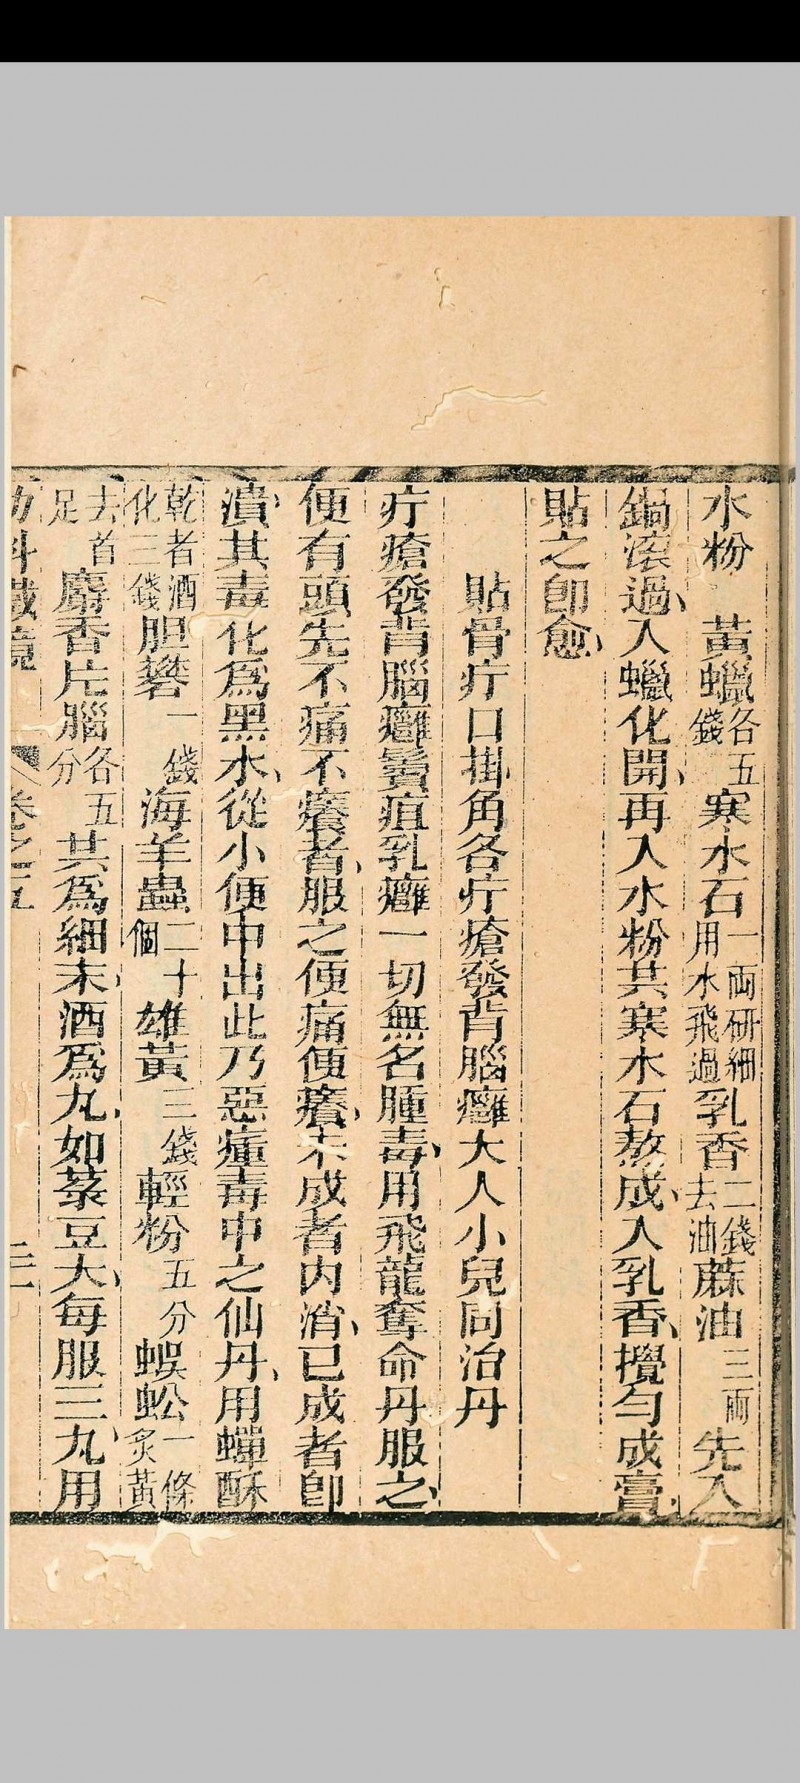 水粉　黃蠟各五錢寒水石一兩研細用水飛過乳香二錢去油蔴油三兩先入
鍋滾過入蠟化開再入水粉共寒水石熬成入乳香攪勻成膏
貼之卽愈
貼骨疔口掛角各疔瘡發背腦癰大人小兒同治丹
疔瘡發背腦癰鬢疽乳癰一切無名腫毒用飛龍奪命丹服之
便有頭先不痛不癢者服之便痛便癢未成者內消已成者卽
潰其毒化爲黑水從小便中出此乃惡瘇毒中之仙丹用蟬酥
乾者酒化三錢胆礬一錢海羊蟲二十個雄黃三錢輕粉五分蜈蚣一條炙黃
去首足麝香片腦各五分共爲細末酒爲丸如菉豆大每服三丸用
幼科鐵鏡　卷之五　三二